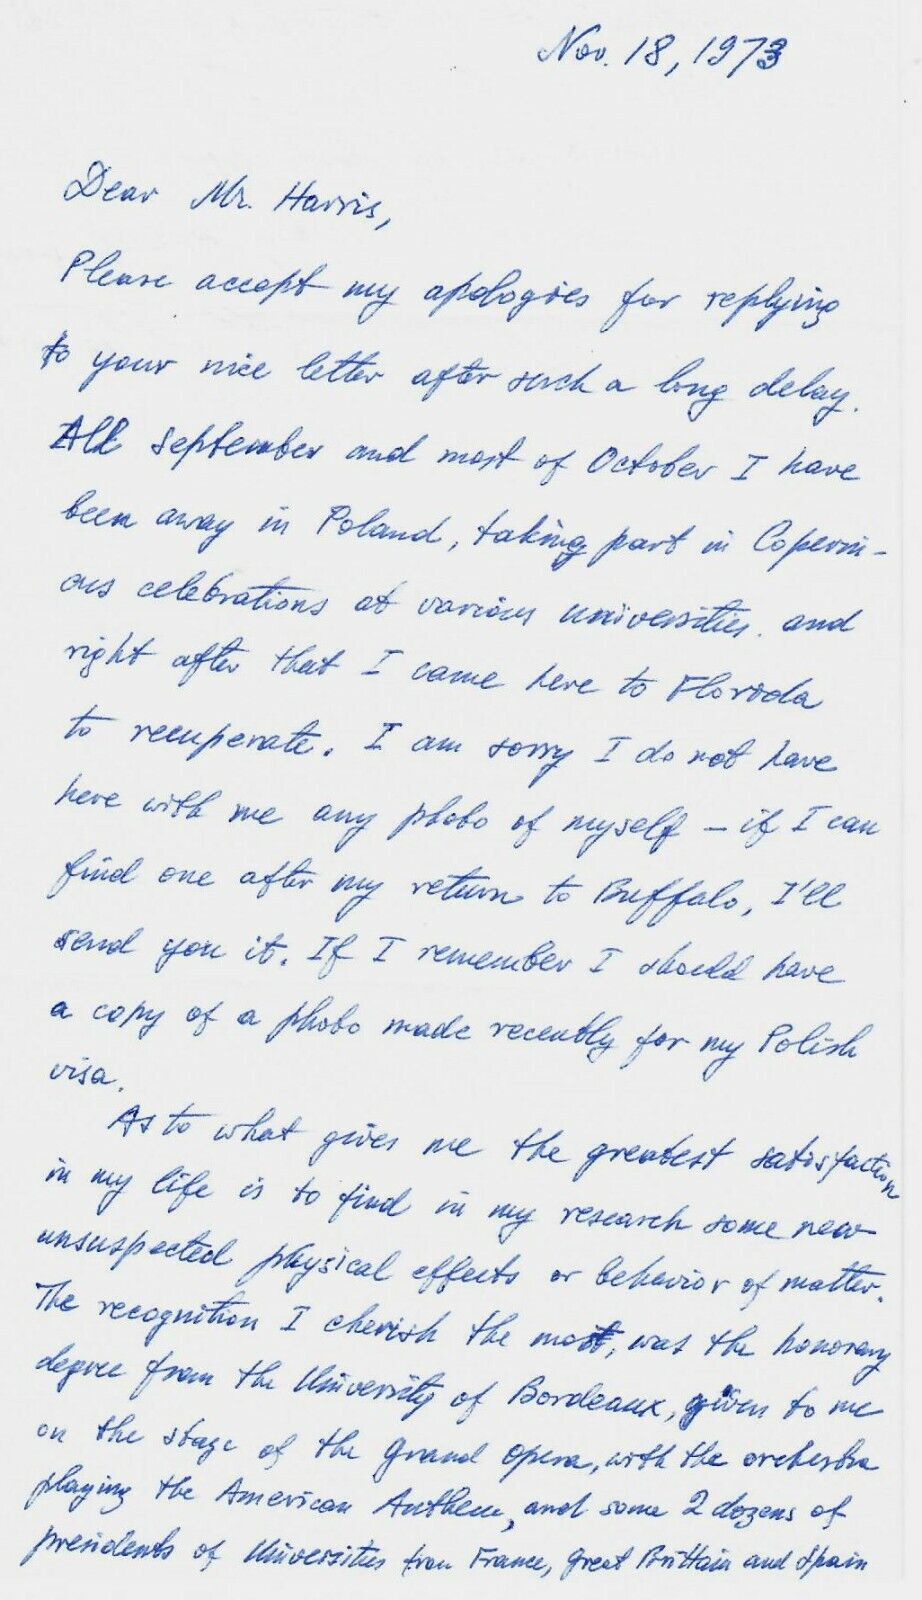 Nov. 18, 1973
Dear Mr. Harris,
Please accept my apologies for replying
to your nice letter after such a long delay.
All September and most of October I have
been away in Poland, taking part in Coperni-
cus celebrations at various universities. and
right after that I came here to Florida
to recuperate. I am sorry I do not have
here with me any photo of myself – if I can
find one after my return to Buffalo, I'll
send you it. If I remember I should have
a copy of a photo made recently for my Polish
visa.
As to what gives me the greatest satisfaction
in my life is to find in my research some new
unsuspected physical effects or behavior of matter.
The recognition I cherish the most, was the honorary
degree from the University of Bordeaux, given to me
on the stage of the Grand Opera, with the orchestra
playing the American Anthem, and some 2 dozens of
presidents of Universities from France, Great Brittain and Spain